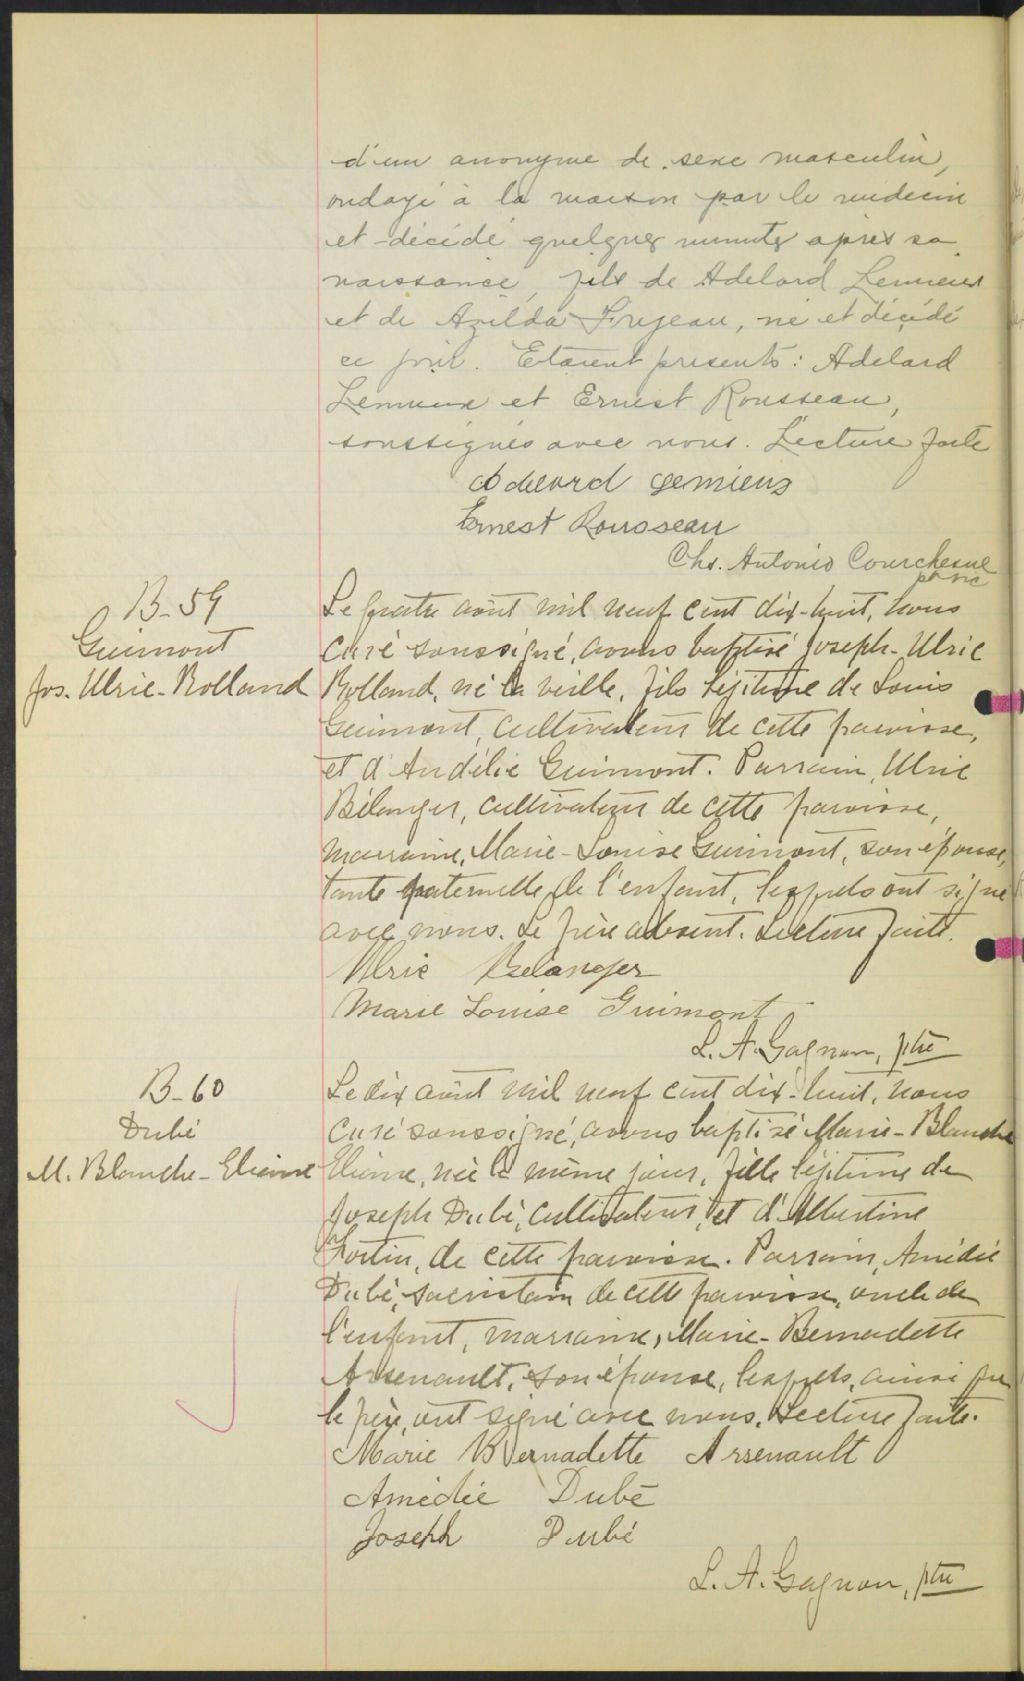 d'un anonyme de sexe masculin,
ondoyé à la maison par le médecin
et décédé quelques minutes après sa
naissance, fils de Adelard Lemieux
et de Azilda Frejeau, né et décédé
ce jour. Etaient présents: Adelard
Lemieux et Ernest Rousseau,
soussignés avec nous. Lecture faite
Adelard Lemieux
Ernest Rousseau
Chs. Antonio Courchesne
ptre vic
B-59
Guimont
Jos. Ulric-Rolland
Le quatre août mil neuf cent dix-huit, nous
curé soussigné, avons baptisé Joseph-Ulric
Rolland, né la veille, fils légitime de Louis
Guimont, cultivateur de cette paroisse,
et d'Andélie Guimont. Parrain, Ulric
Bélanger, cultivateur de cette paroisse,
marraine, Marie-Louise Guimont, son épouse,
tante paternelle de l'enfant, lesquels ont signé
avec nous. Le père absent. Lecture faite.
Ulric Belanger
Marie Louise Guimont
L. A. Gagnon, ptre
B-60
Dubé
M. Blanche-Elienne
Le dix août mil neuf cent dix-huit, nous
curé soussigné, avons baptisé Marie-Blanche
Elienne, née le même jour, fille légitime de
Joseph Dubé, cultivateur, et d'Albertine
Fortin, de cette paroisse. Parrain, Amédée
Dubé, sacristain de cette paroisse, oncle de
l'enfant, marraine, Marie-Bernadette
Arsenault, son épouse, lesquels, ainsi que
le père, ont signé avec nous. Lecture faite.
Marie Bernadette Arsenault
Amédée Dubé
Joseph Dubé
L. A. Gagnon, ptre